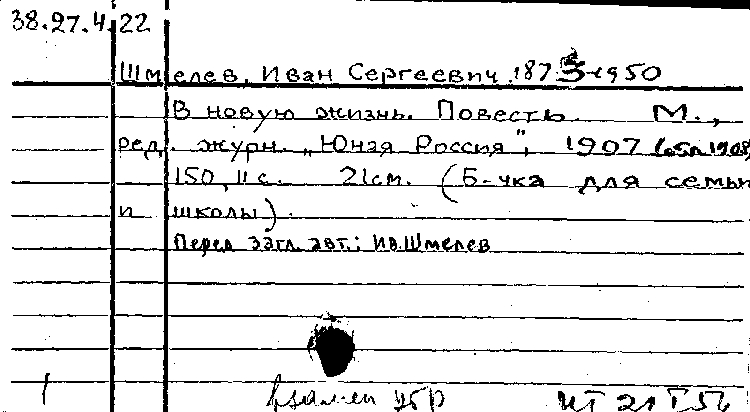 38.27.4.22
Шмелев, Иван Сергеевич, 1873-1950
В новую жизнь. Повесть М.,
ред. журн. „Юная Россия", 1907 (обл. 1908)
150, II с. 21см. (Б-чка для семьи
и школы).
Перед загл. авт.: Ив. Шмелев
1 взамен